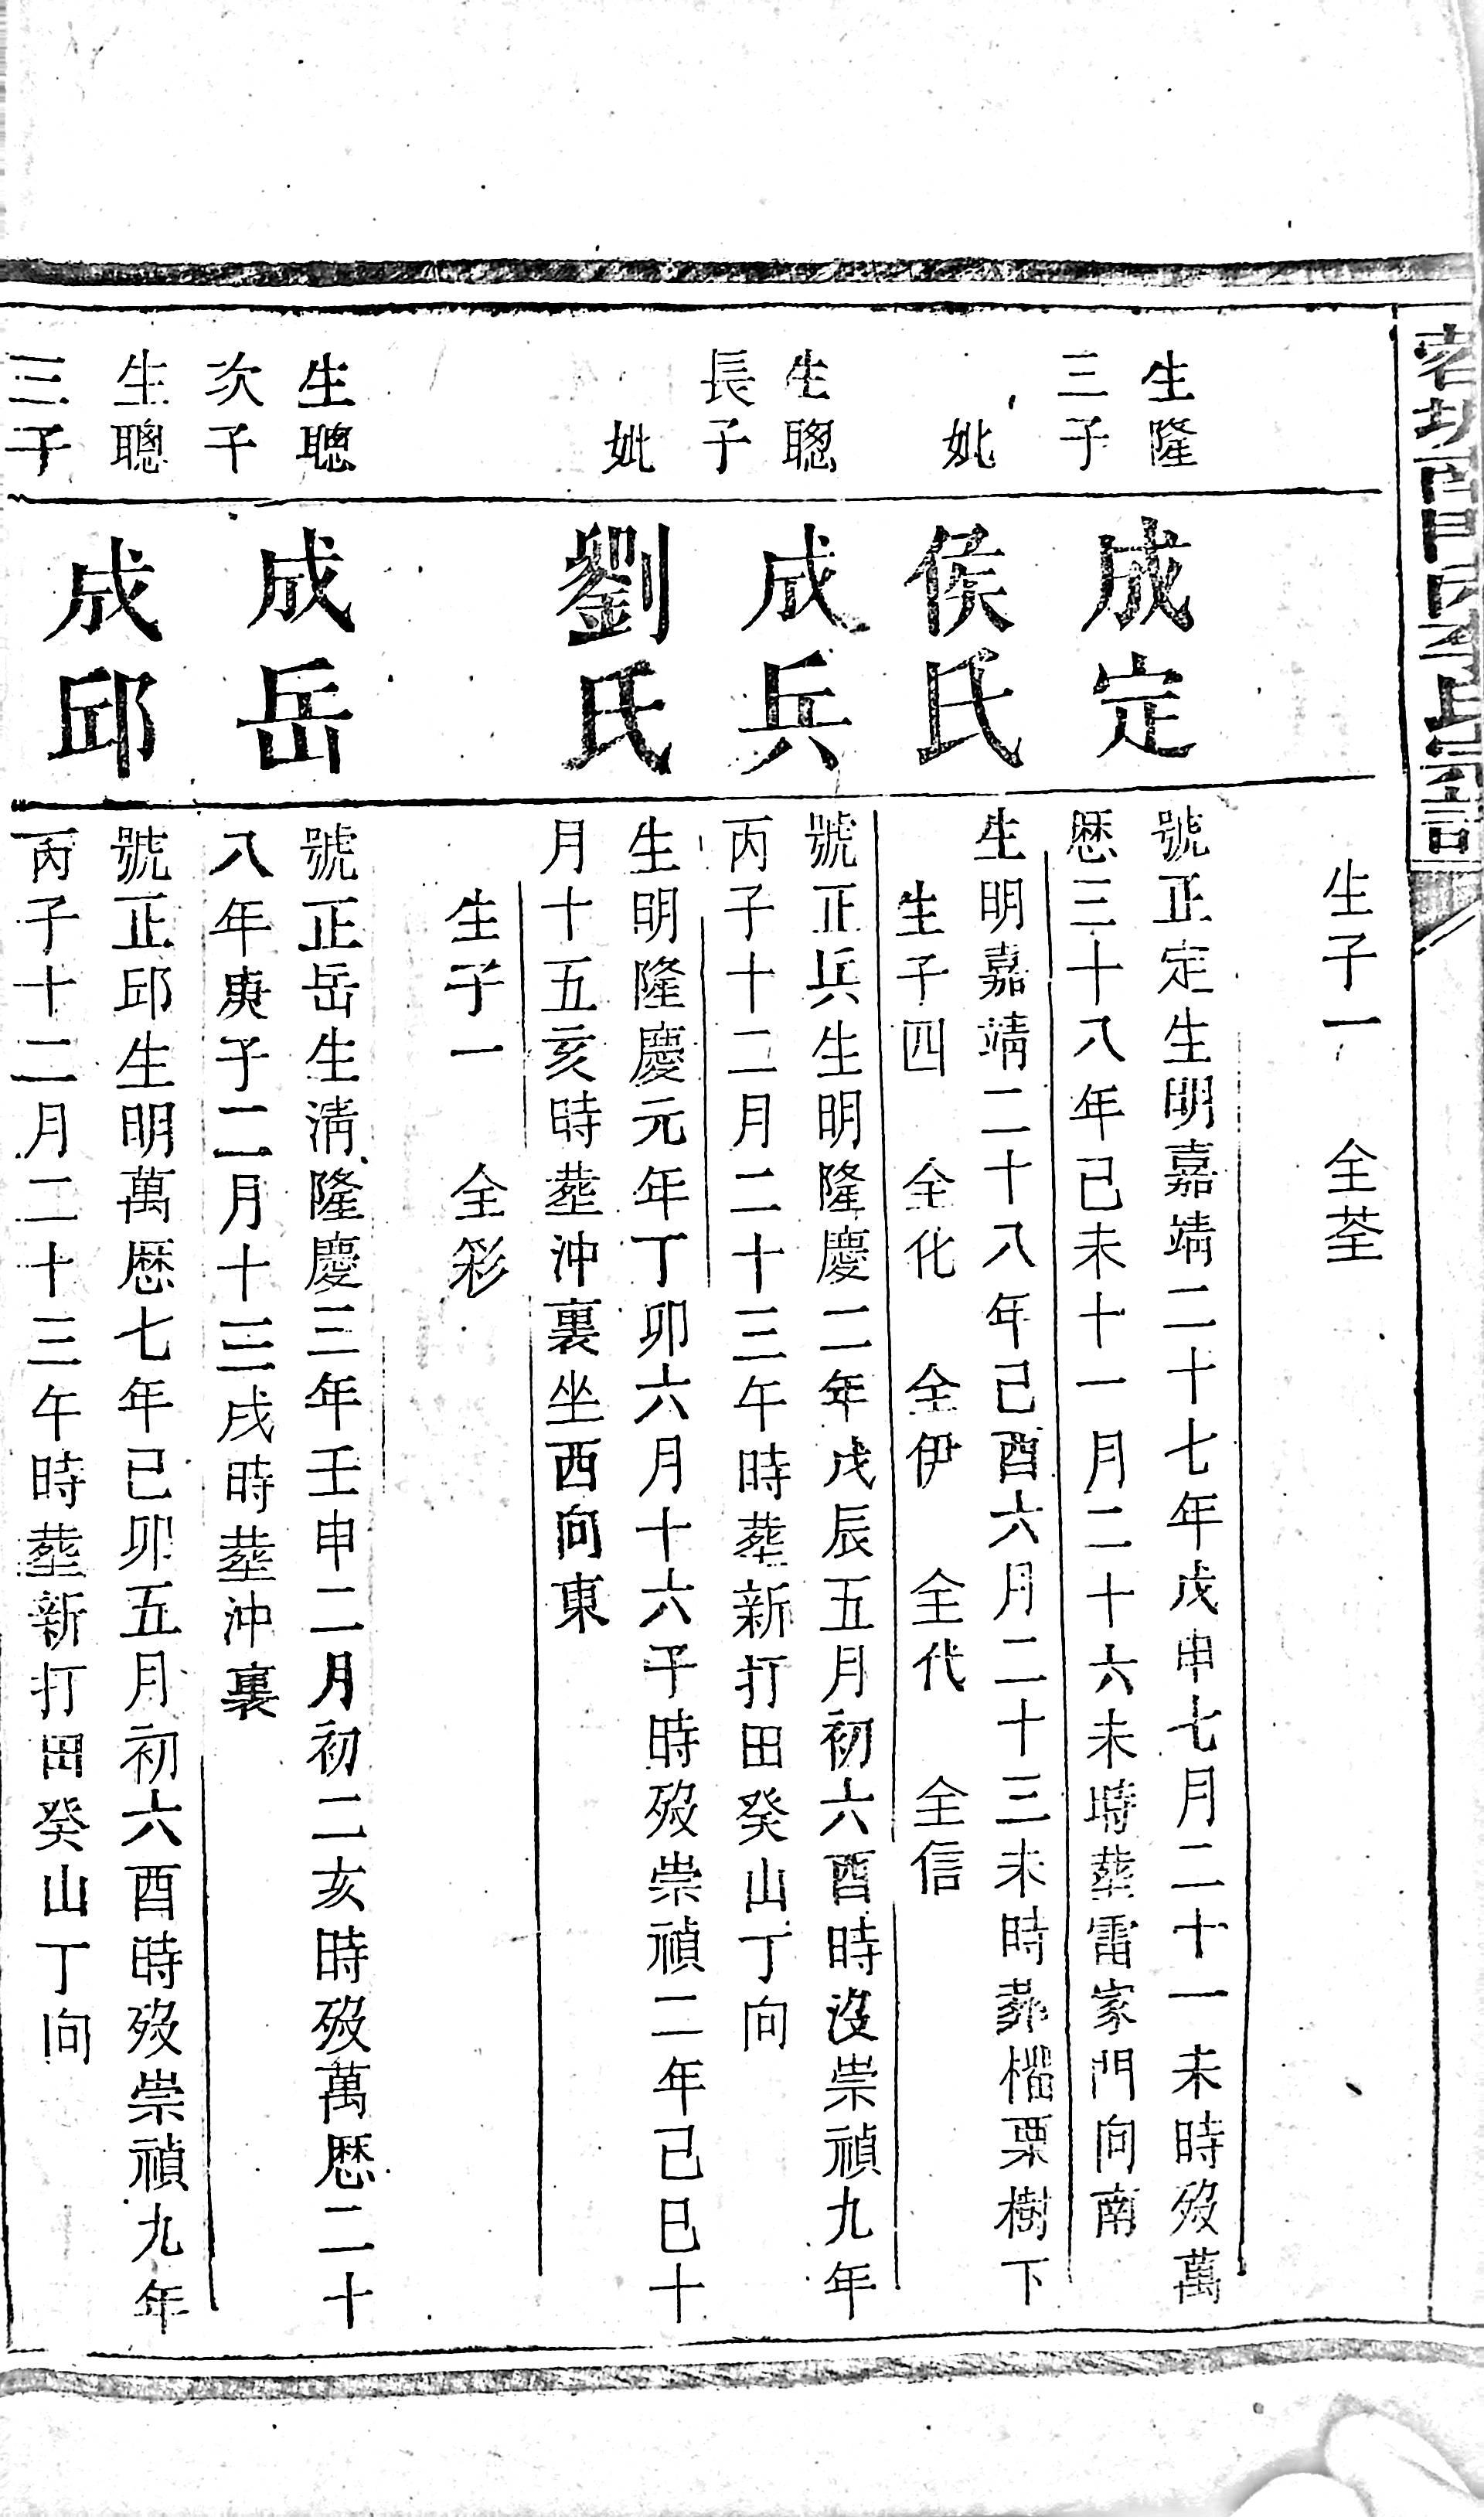 生子一 全荃
生隆
三子
成定
號正定生明嘉靖二十七年戊申七月二十一未時歿萬
厯三十八年已未十一月二十六未時塟雷家門向南
妣
侯氏
生明嘉靖二十八年己酉六月二十三未時葬橊栗樹下
生子四 全化 全伊 全代 全信
生聰
長子
成兵
號正兵生明隆慶二年戊辰五月初六酉時沒崇禎九年
丙子十二月二十三午時塟新打田癸山丁向
妣
劉氏
生明隆慶元年丁卯六月十六子時歿崇禎二年己巳十
月十五亥時塟沖裏坐西向東
生子一 全彩
生聰
次子
成岳
號正岳生淸隆慶三年壬申二月初二亥時歿萬厯二十
八年庚子二月十三戌時塟沖裏
生聰
三子
成邱
號正邱生明萬厯七年己卯五月初六酉時歿崇禎九年
丙子十二月二十三午時塟新打田癸山丁向